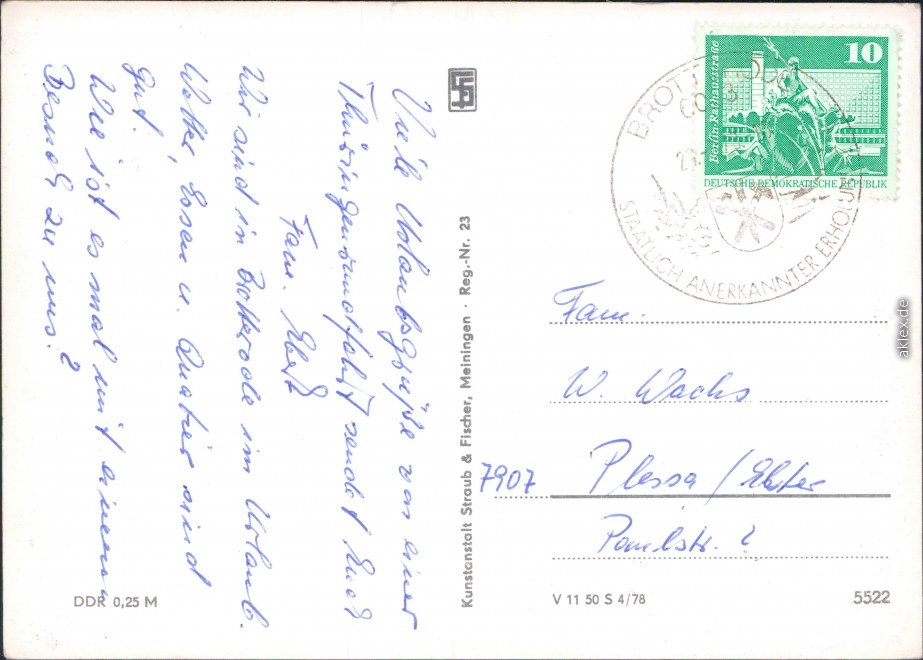 Viele Urlaubsgrüße von einer
Thüringenrundfahrt sendet Euch
Fam. Ebert
Wir sind in Brotterode im Urlaub.
Wetter, Essen u. Quatier sind
gut.
Wie ist es mal mit einem
Besuch zu uns?
DDR 0,25 M
Kunstanstalt Straub & Fischer, Meiningen · Reg.-Nr. 23
10
Berlin-Rathausstraße
DEUTSCHE DEMOKRATISCHE REPUBLIK
STAATLICH ANERKANNTER
Fam.
W. Wachs
7907 Plessa / Elster
V 11 50 S 4/78
5522
akleX.de